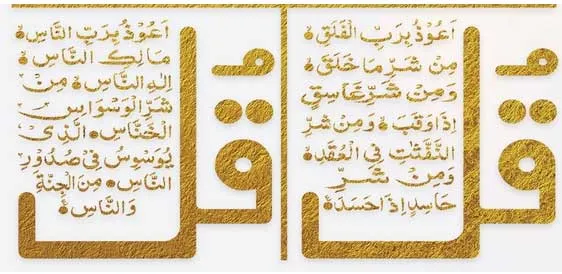 قُل
اَعُوْذُ بِرَبِّ الْفَلَقِ
مِنْ شَرِّ مَا خَلَقَ
وَمِنْ شَرِّ غَاسِقٍ
اِذَا وَقَبَ وَمِنْ شَرِّ
النَّفّٰثٰتِ فِي الْعُقَدِ
وَمِنْ شَرِّ
حَاسِدٍ اِذَا حَسَدَ
قُل
اَعُوْذُ بِرَبِّ النَّاسِ
مَالِكِ النَّاسِ
اِلٰهِ النَّاسِ مِنْ
شَرِّ الْوَسْوَاسِ
الْخَنَّاسِ الَّذِيْ
يُوَسْوِسُ فِيْ صُدُوْرِ
النَّاسِ مِنَ الْجِنَّةِ
وَالنَّاسِ